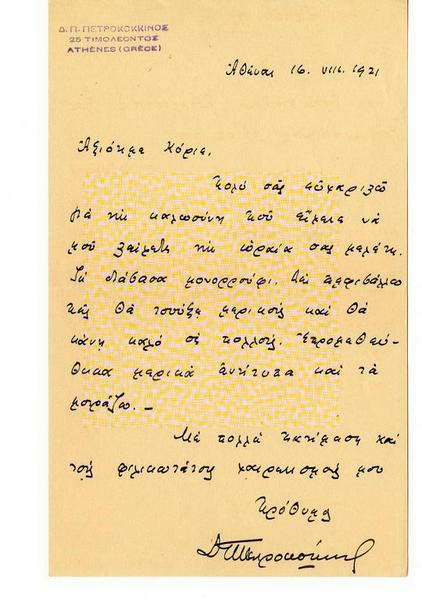 Δ. Π. ΠΕΤΡΟΚΟΚΚΙΝΟΣ
25 ΤΙΜΟΛΕΟΝΤΟΣ
ATHÈNES (GRÈCE)
Ἀθῆναι 16. VIII. 1921
Ἀξιότιμε Κύριε,
Πολὺ σᾶς εὐχαριστῶ
γιὰ τὴν καλωσύνη ποῦ εἴχατε νὰ
μοῦ στείλετε τὴν ὡραία σας μελέτη.
Τὴ διάβασα μονορροῦφι. Δὲν ἀμφιβάλλω
πῶς θὰ μερικοὺς καὶ θὰ
κάνη καλὸ σὲ πολλούς. Ἐπρομηθεύ-
θηκα μερικὰ ἀντίτυπα καὶ τὰ
μοιράζω. —
Μὲ πολλὴ ἐκτίμηση καὶ
τοὺς φιλικωτάτους χαιρετισμούς μου
Πρόθυμος
Δ. Π. Πετροκόκκινος